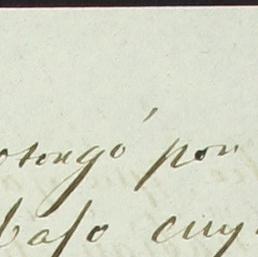 otorgó por
bajo cuy